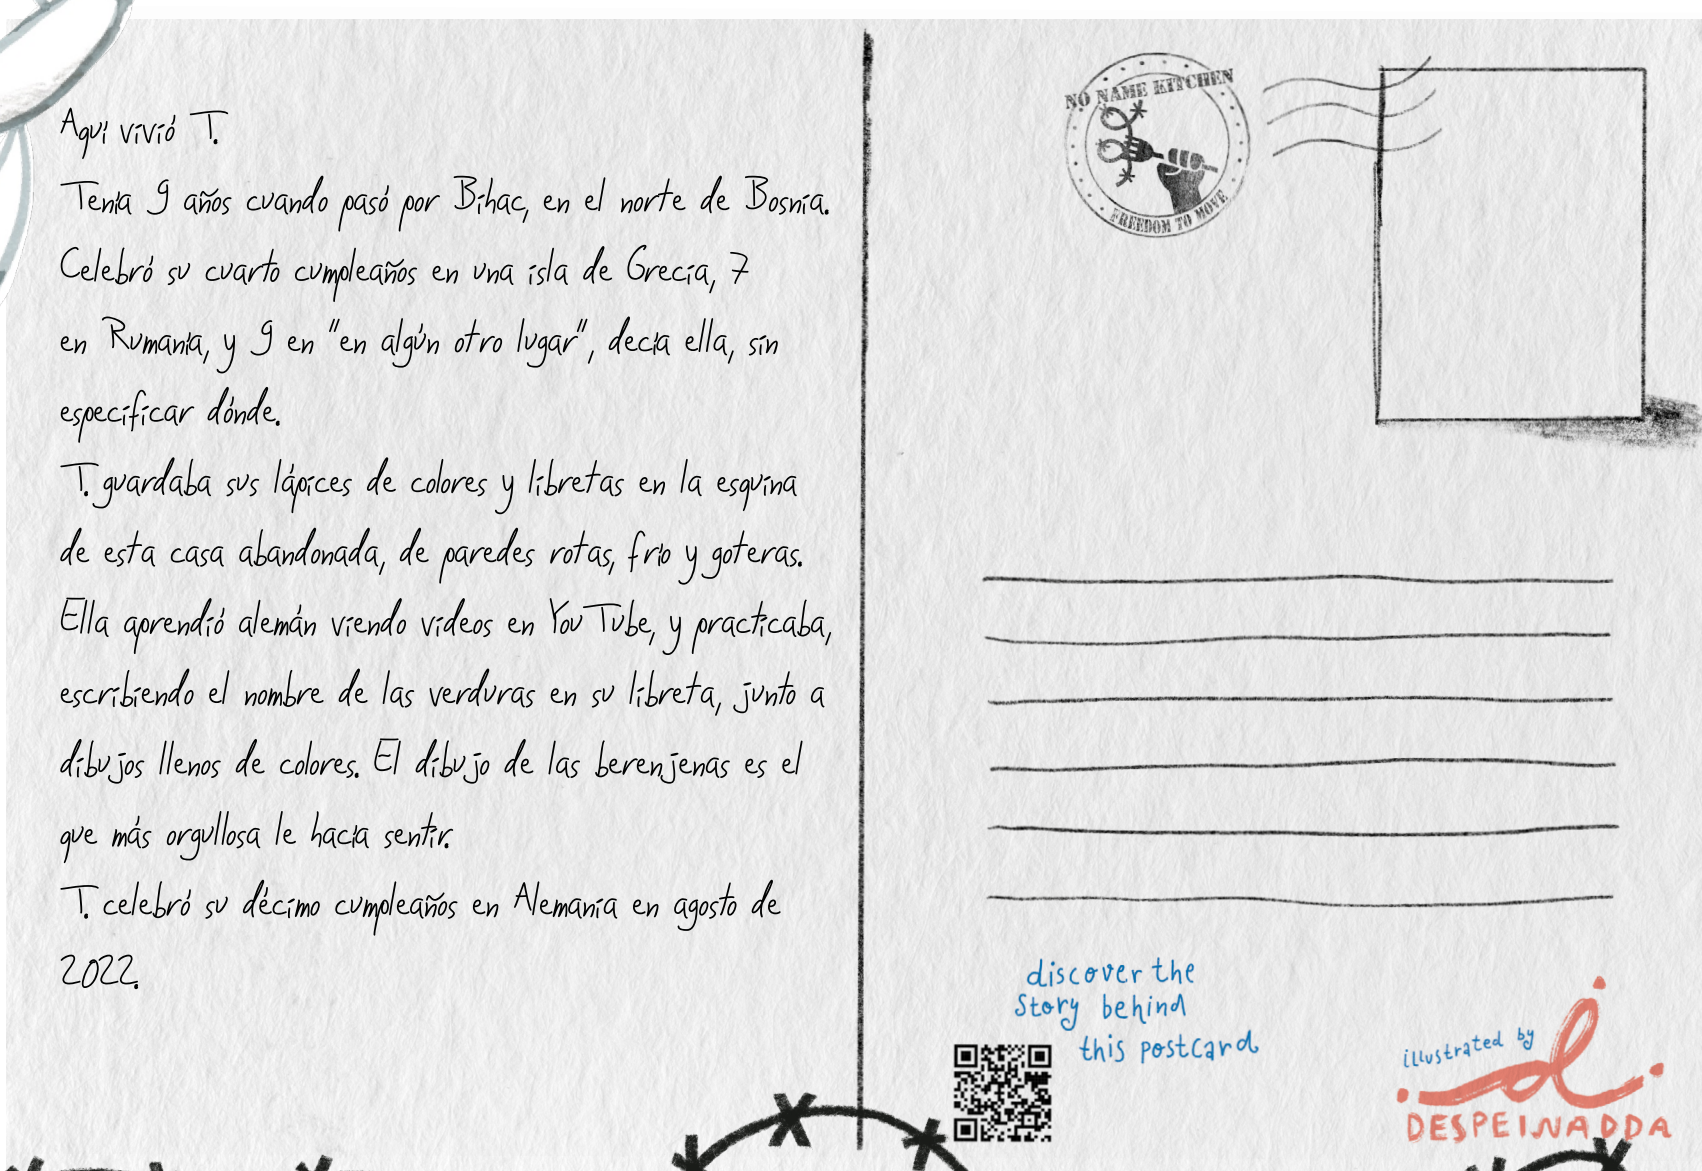 Aquí vivió T.
Tenía 9 años cuando pasó por Bihac, en el norte de Bosnia.
Celebró su cuarto cumpleaños en una isla de Grecia, 7
en Rumanía, y 9 en "en algún otro lugar", decía ella, sin
especificar dónde.
T. guardaba sus lápices de colores y libretas en la esquina
de esta casa abandonada, de paredes rotas, frío y goteras.
Ella aprendió alemán viendo vídeos en YouTube, y practicaba,
escribiendo el nombre de las verduras en su libreta, junto a
dibujos llenos de colores. El dibujo de las berenjenas es el
que más orgullosa le hacía sentir.
T. celebró su décimo cumpleaños en Alemania en agosto de
2022.
NO NAME KITCHEN
FREEDOM TO MOVE
discover the
story behind
this postcard
illustrated by
d
DESPEINADDA